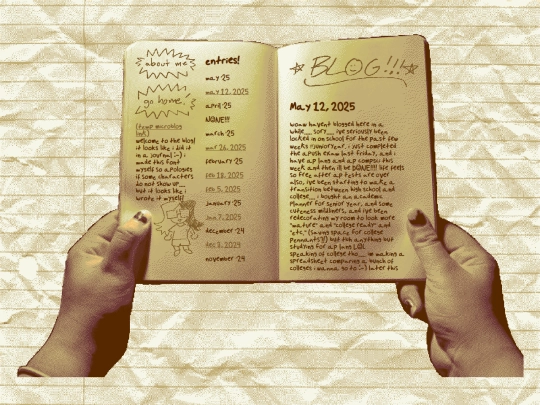 about me
go home.
[temp microblog
link]
welcome to the blog!
it looks like i did it
in a journal :-) i
made this font
myself so apologies
if some characters
do not show up
but it looks like i
wrote it myself!
entries!
may 25
may 12, 2025
april 25
NONE!!!!
march 25
mar 26, 2025
february 25
feb 18, 2025
feb 5, 2025
january 25
jan 7, 2025
december 24
dec 3, 2024
november 24
BLOG!!!
May 12, 2025
woaw havent blogged here in a
while__ sory__ ive seriously been
locked in on school for the past few
weeks #junioryear. i just completed
the apush exam last friday, and i
have ap lang and ap compsci this
week and then ill be DONE!!! life feels
so free after ap tests are over
also, ive been starting to make a
transition between high school and
college__ i bought an academic
planner for senior year, and some
cuteness mildliners, and ive been
redecorating my room to look more
"mature" and "college ready" and
"etc." (saving space for college
pennants!!) but tbh anything but
studying for ap lang LOL
speaking of college tho__ im making a
spreadsheet comparing a bunch of
colleges i wanna go to :-) later this